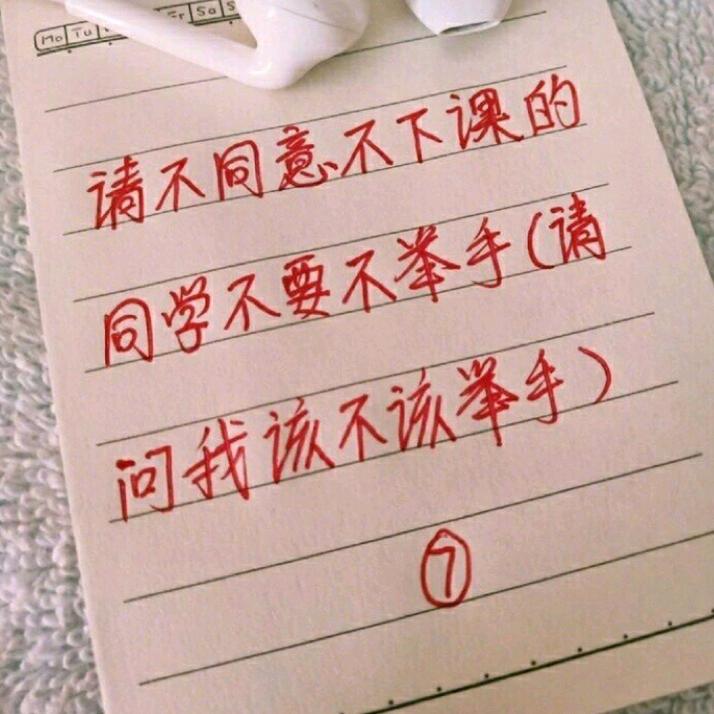 Mo Tu Fr Sa S
请不同意不下课的
同学不要不举手(请
问我该不该举手)
⑦